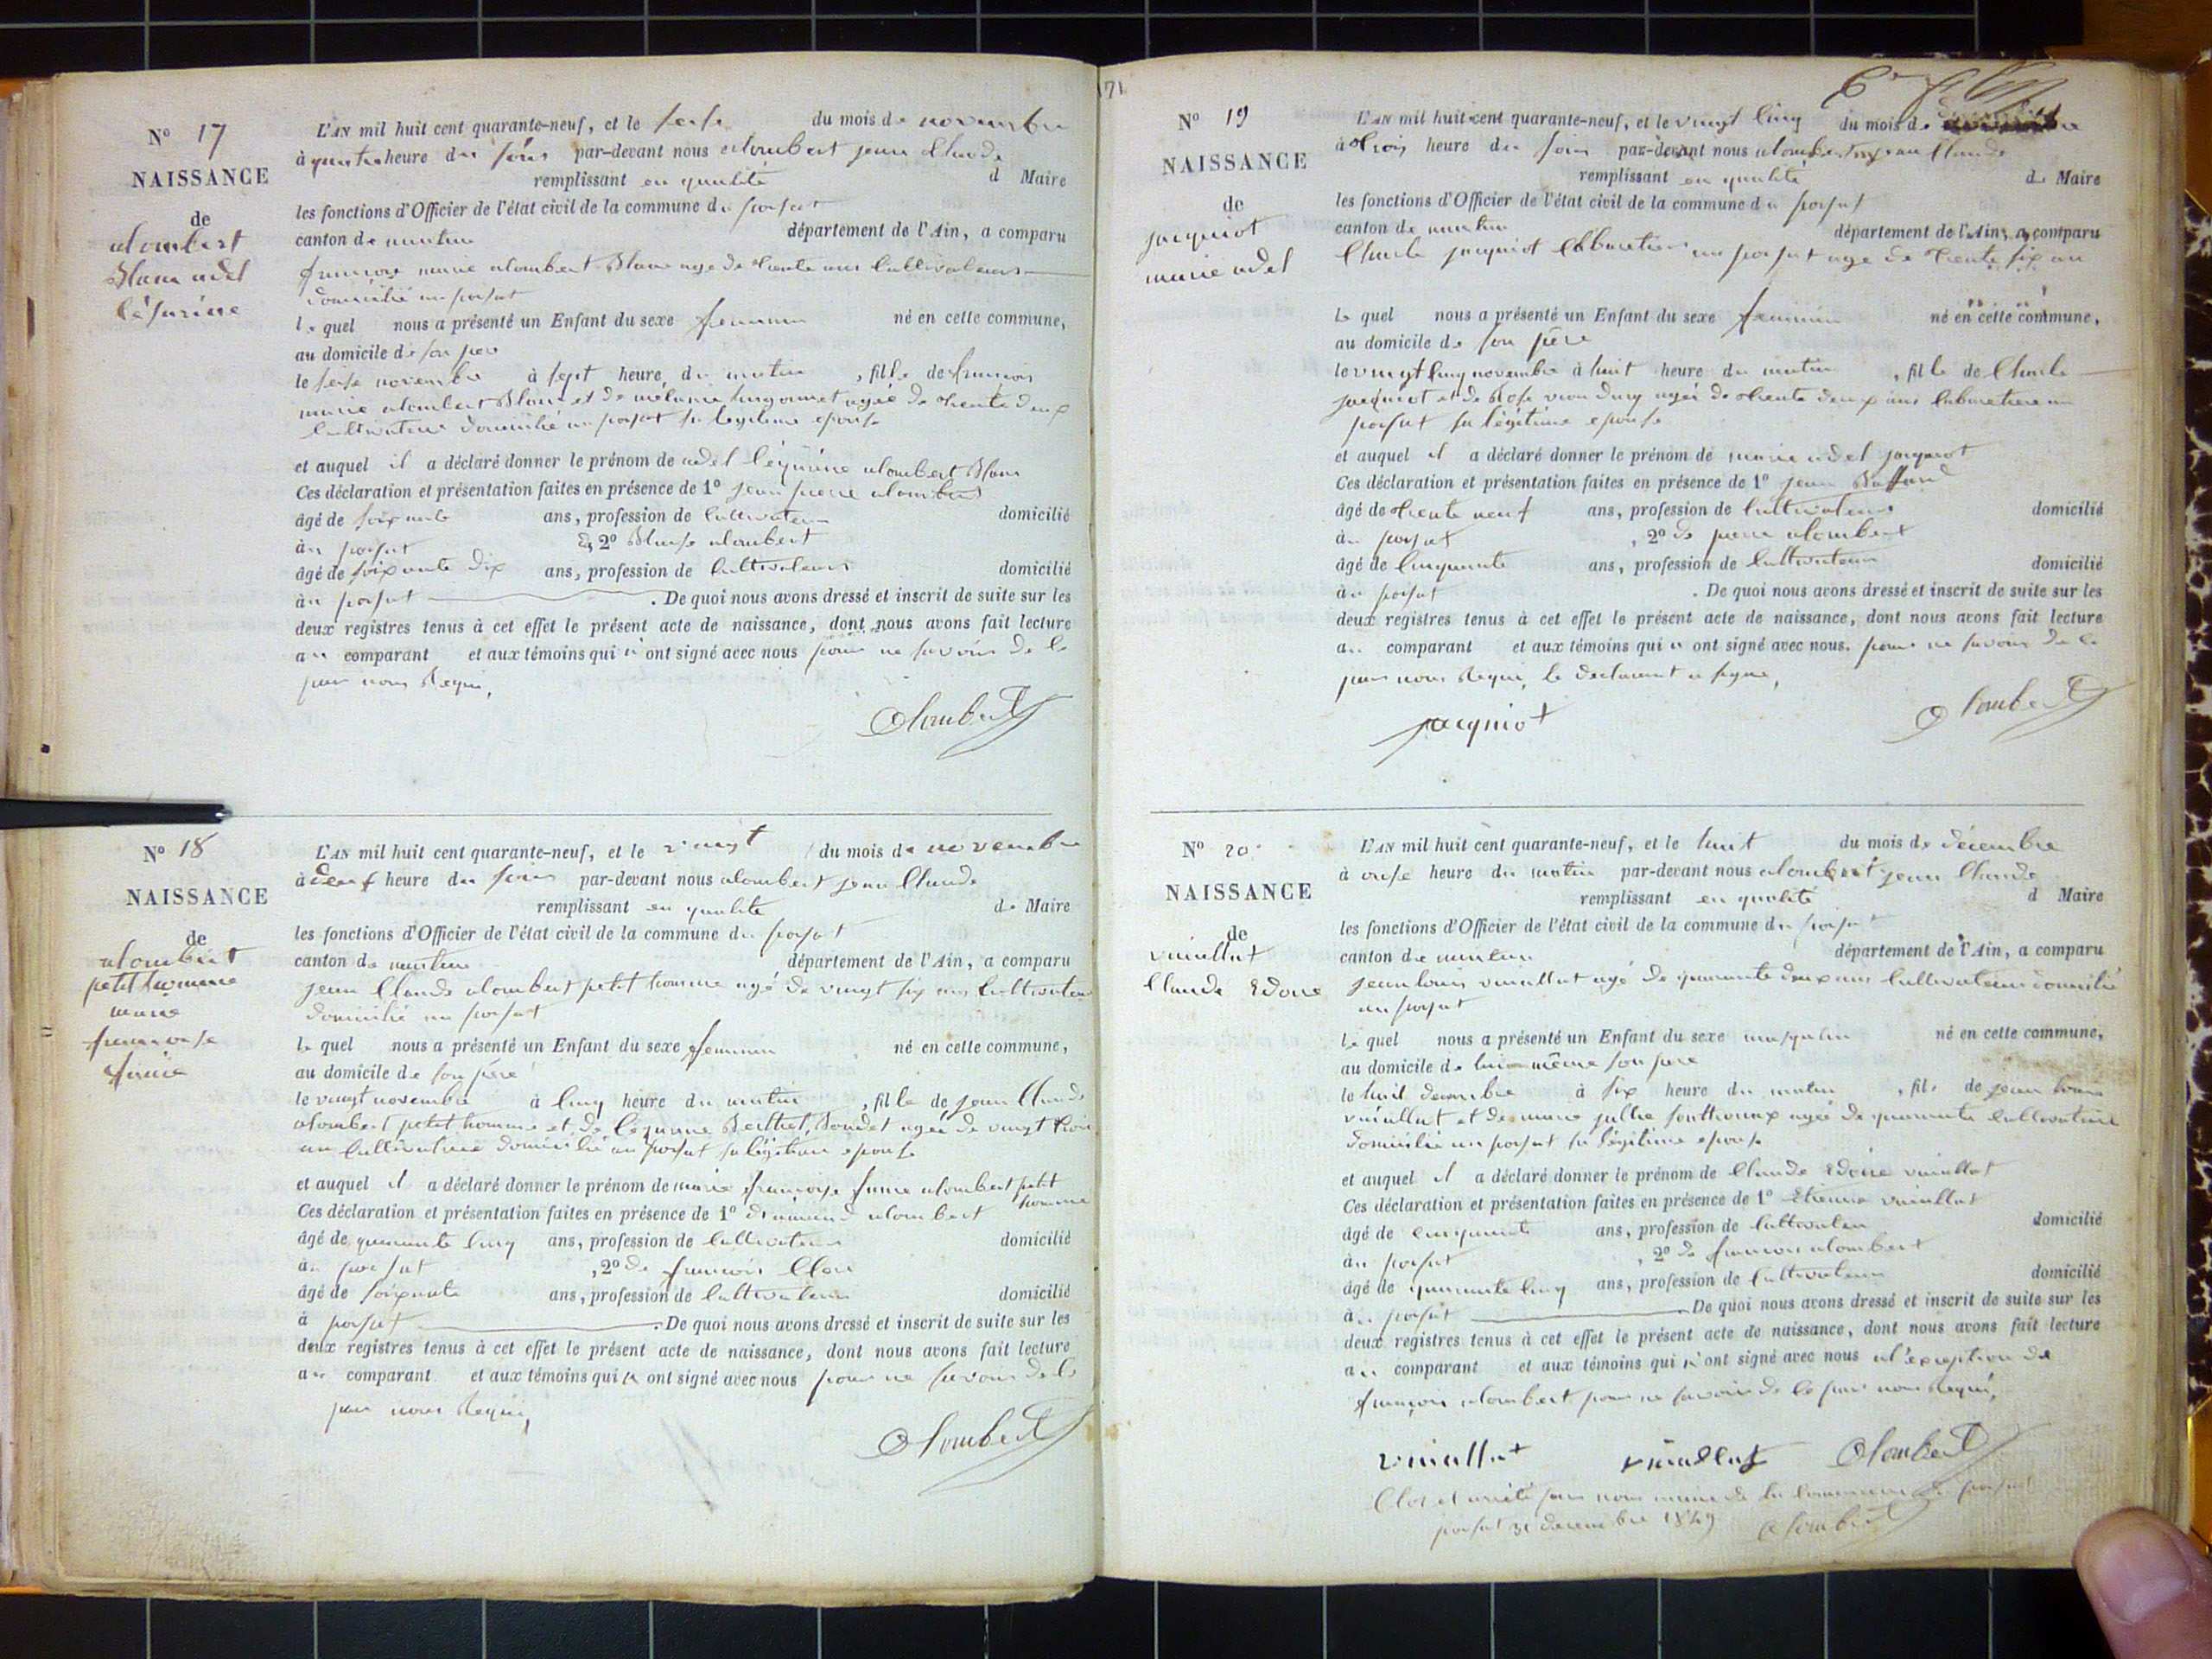 N° 17
NAISSANCE
de
alombert
Blanc adel
lésurine
L'AN mil huit cent quarante-neuf, et le seise du mois de novembre
à quatre heure du soir par-devant nous alombert jean Claude
remplissant en qualité d Maire
les fonctions d'Officier de l'état civil de la commune du
canton de département de l'Ain, a comparu
françois marie alombert Blanc age de trente ans Cultivateur
domicilié au
le quel nous a présenté un Enfant du sexe feminin né en cette commune,
au domicile de son pere
le seise novembre à sept heure du matin , fille de françois
marie alombert Blanc et de melanie agée de trente deux
Cultivatrice domicilié au sa legitime epouse
et auquel il a déclaré donner le prénom de adel alombert Blanc
Ces déclaration et présentation faites en présence de 1° jean pierre alombert
âgé de soixante ans, profession de Cultivateur domicilié
au & 2° Blaise alombert
âgé de soixante dix ans, profession de Cultivateur domicilié
au . De quoi nous avons dressé et inscrit de suite sur les
deux registres tenus à cet effet le présent acte de naissance, dont nous avons fait lecture
au comparant et aux témoins qui n'ont signé avec nous pour ne savoir de le
par nous Requi,
Alombert
N° 18
NAISSANCE
de
alombert
petit homme
marie
francoise
L'AN mil huit cent quarante-neuf, et le vingt du mois de novembre
à heure du soir par-devant nous alombert jean Claude
remplissant en qualité de Maire
les fonctions d'Officier de l'état civil de la commune du
canton de département de l'Ain, a comparu
jean Claude alombert petit homme agé de vingt six ans Cultivateur
domicilié au
le quel nous a présenté un Enfant du sexe feminin né en cette commune,
au domicile de son père
le vingt novembre à cinq heure du matin , fille de jean Claude
alombert petit homme et de Berthet, Bondet agée de vingt trois
an Cultivatrice domicilié au sa légitime epouse
et auquel il a déclaré donner le prénom de marie françoise alombert petit
homme
Ces déclaration et présentation faites en présence de 1° alombert
âgé de quarante cinq ans, profession de Cultivateur domicilié
au , 2° de françois
âgé de soixante ans, profession de Cultivateur domicilié
à . De quoi nous avons dressé et inscrit de suite sur les
deux registres tenus à cet effet le présent acte de naissance, dont nous avons fait lecture
au comparant et aux témoins qui n ont signé avec nous pour ne savoir de le
par nous Requi,
Alombert
71
N° 19
NAISSANCE
de
jacquiot
marie adel
L'AN mil huit cent quarante-neuf, et le vingt cinq du mois de
à trois heure du soir par-devant nous alombert jean Claude
remplissant en qualité de Maire
les fonctions d'Officier de l'état civil de la commune du
canton de département de l'Ain, a comparu
Claude jacquiot au age de trente six an
Le quel nous a présenté un Enfant du sexe feminin né en cette commune,
au domicile de son père
le vingt cinq novembre à huit heure du matin , fille de Claude
jacquiot et de Rose agée de trente deux ans au
sa légitime epouse
et auquel il a déclaré donner le prénom de marie adel jacquiot
Ces déclaration et présentation faites en présence de 1° jean
âgé de trente neuf ans, profession de Cultivateur domicilié
au , 2° de pierre alombert
âgé de cinquante ans, profession de Cultivateur domicilié
au . De quoi nous avons dressé et inscrit de suite sur les
deux registres tenus à cet effet le présent acte de naissance, dont nous avons fait lecture
au comparant et aux témoins qui n ont signé avec nous. pour ne savoir de le
par nous Requi, le declarant a signé,
jacquiot
Alombert
N° 20
NAISSANCE
de
vuaillat
Claude
L'AN mil huit cent quarante-neuf, et le huit du mois de décembre
à onse heure du matin par-devant nous alombert jean Claude
remplissant en qualité d Maire
les fonctions d'Officier de l'état civil de la commune du
canton de département de l'Ain, a comparu
jean louis vuaillat agé de quarante deux ans Cultivateur domicilié
au
le quel nous a présenté un Enfant du sexe masqulin né en cette commune,
au domicile de lui-même son pere
le huit decembre à six heure du matin , fils de jean louis
vuaillat et de marie agée de quarante Cultivatrice
domicilié au sa légitime epouse
et auquel il a déclaré donner le prénom de Claude vuaillat
Ces déclaration et présentation faites en présence de 1° Etienne vuaillat
âgé de cinquante ans, profession de Cultivateur domicilié
au , 2° de francois alombert
âgé de quarante cinq ans, profession de Cultivateur domicilié
au . De quoi nous avons dressé et inscrit de suite sur les
deux registres tenus à cet effet le présent acte de naissance, dont nous avons fait lecture
au comparant et aux témoins qui n'ont signé avec nous al'exception de
françois alombert pour ne savoir de le par nous Requi,
vuaillat vuaillat Alombert
Clos et arrêté par nous maire de la commune de
31 decembre 1849 Alombert